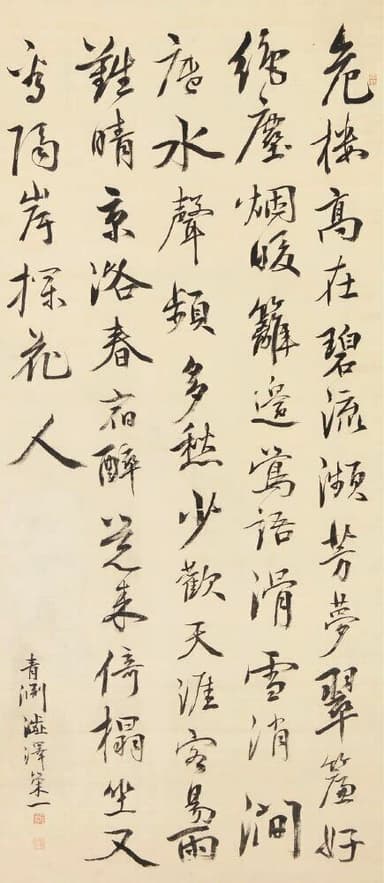 危楼高在碧流瀕芳夢翠簾好
絶塵烟暖籬邊鶯語滑雪消澗
底水聲頻多愁少歡天涯客易雨
難晴京洛春宿醉覚来倚榻坐又
看隔岸探花人
青渊澁澤栄一